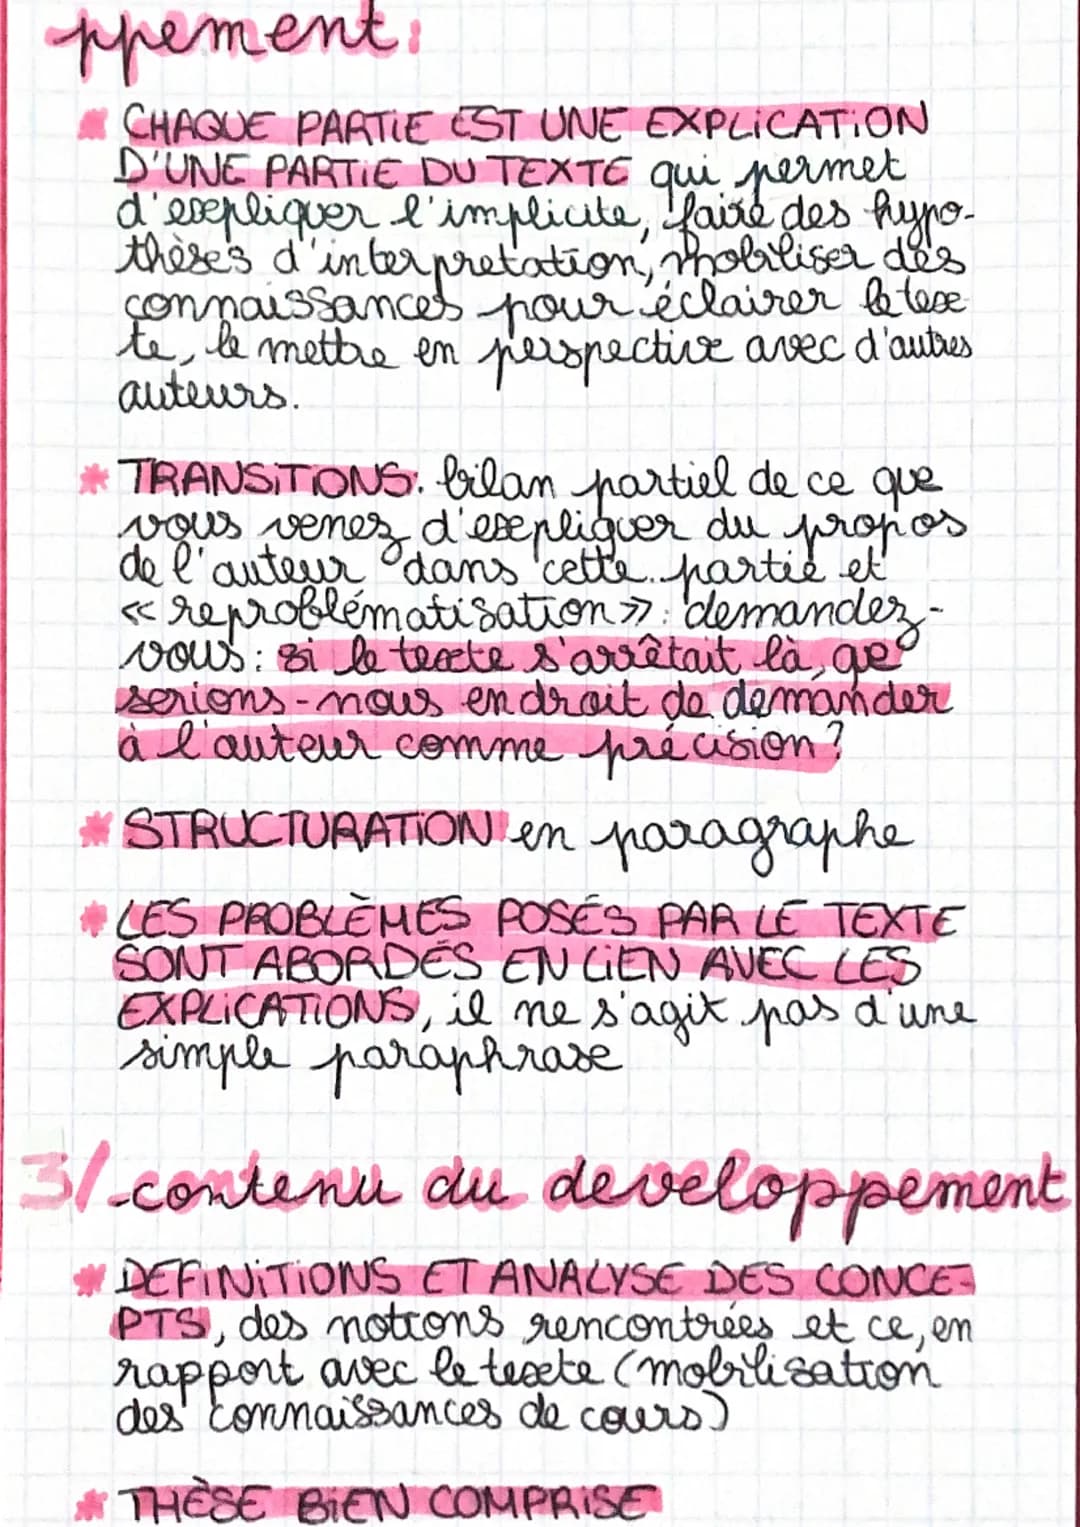 ppement:
* CHAQUE PARTIE EST UNE EXPLICATION
D'UNE PARTIE DU TEXTE qui permet
d'expliquer l'implicite, faire des hypo-
thèses d'interpretation, mobiliser des
connaissances pour éclairer le tex-
te, le mettre en perspective avec d'autres
auteurs.
* TRANSITIONS: bilan partiel de ce que
vous venez d'expliquer du propos
de l'auteur dans cette partie et
« reproblématisation »: demandez-
vous: si le texte s'arrêtait là, qe
serions-nous en droit de demander
à l'auteur comme précision?
* STRUCTURATION en paragraphe
* LES PROBLÈMES POSÉS PAR LE TEXTE
SONT ABORDÉS EN LIEN AVEC LES
EXPLICATIONS, il ne s'agit pas d'une
simple paraphrase
3/ contenu du developpement
* DEFINITIONS ET ANALYSE DES CONCE-
PTS, des notions rencontrées et ce, en
rapport avec le texte (mobilisation
des connaissances de cours)
* THÈSE BIEN COMPRISE